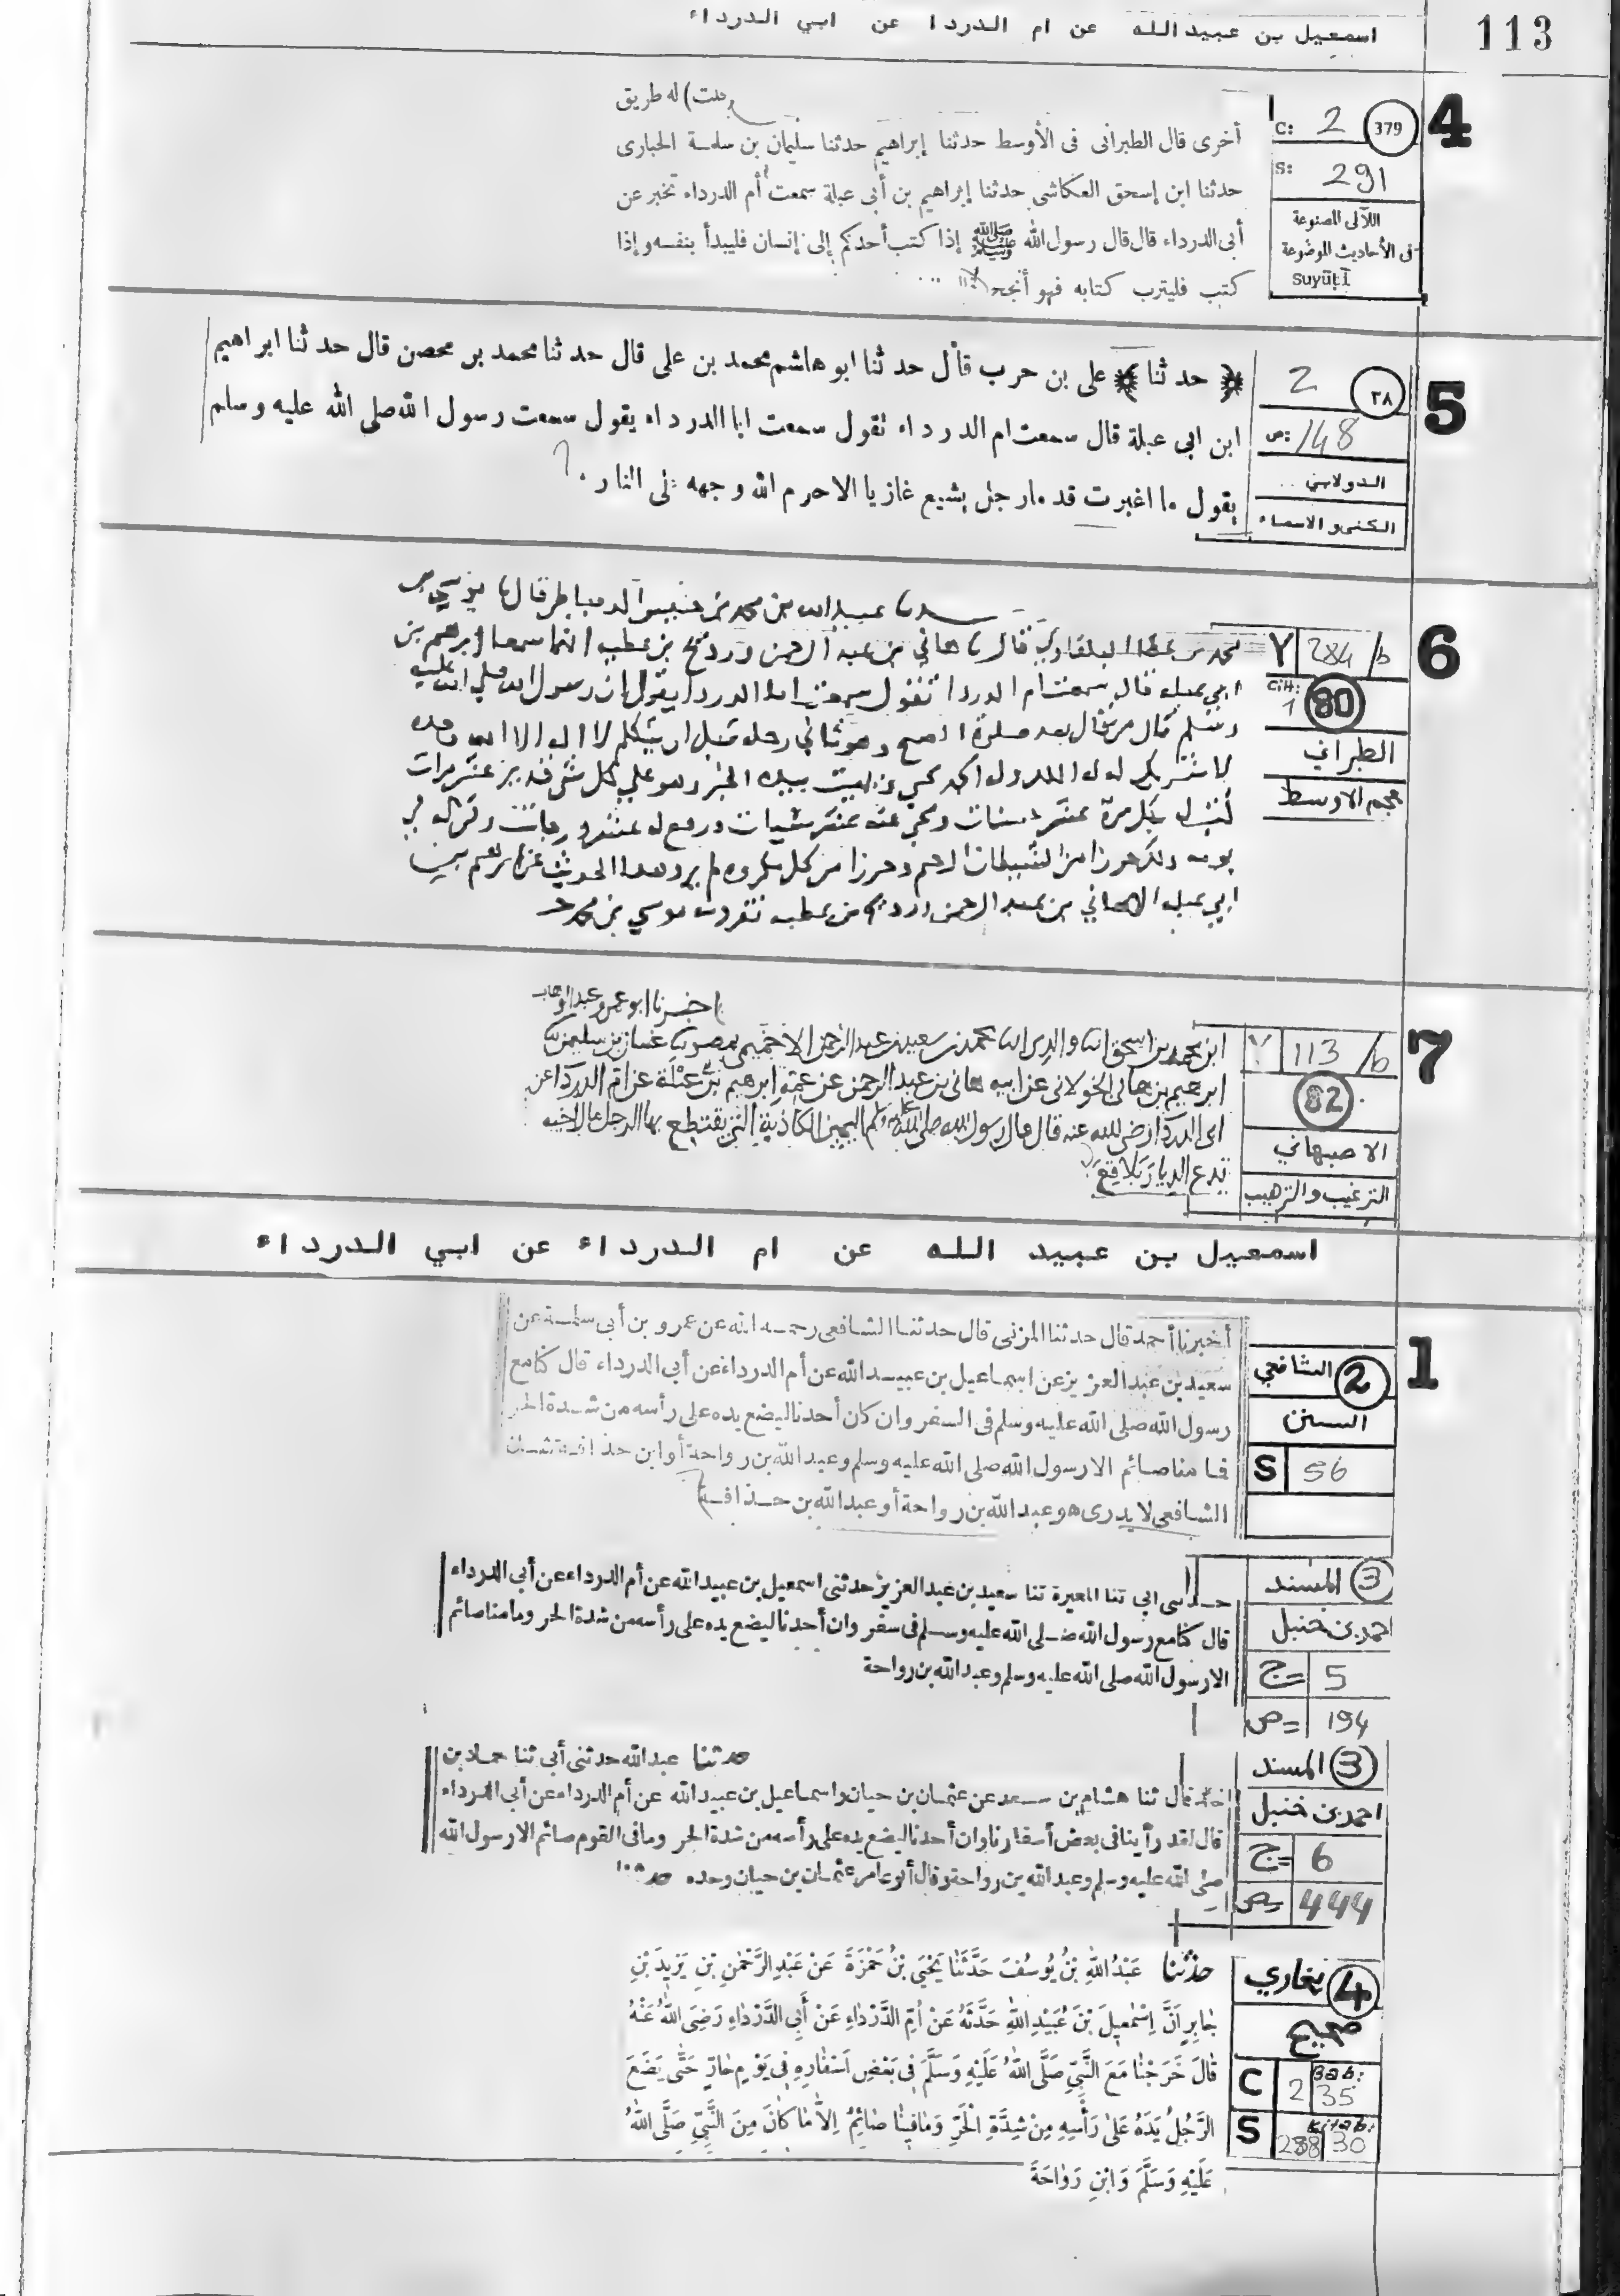 اسمعيل بن عبيد الله عن ام الدردا عن ابي الدرداء
113
4
C: 2 379
S: 291
اللآلى المصنوعة
فى الأحاديث الموضوعة
Suyūṭī
له طريق
أخرى قال الطبرانى فى الأوسط حدثنا إبراهيم حدثنا سليمان بن سلمة الخبارى
حدثنا ابن إسحق العكاشى حدثنا إبراهيم بن أبى عبلة سمعت أم الدرداء تخبر عن
أبى الدرداء قال قال رسول الله ﷺ إذا كتب أحدكم إلى إنسان فليبدأ بنفسه وإذا
كتب فليترب كتابه فهو أنجح
5
2 ٣٨
ص: 148
الدولابي
الكنى والاسماء
حدثنا على بن حرب قال حدثنا ابو هاشم محمد بن على قال حدثنا محمد بن محصن قال حدثنا ابراهيم
ابن ابى عبلة قال سمعت ام الدرداء تقول سمعت ابا الدرداء يقول سمعت رسول الله صلى الله عليه وسلم
يقول ما اغبرت قدما رجل يشيع غازيا الا حرم الله وجهه فى النار .
6
Y 284/b
Cilt: 1 80
الطبراني
معجم الاوسط
عبيد الله بن محمد بن خنيس الدمياطى قال موسى بن
محمد بن عطا البلقاوي قال هاني بن عبد الرحمن ورديح بن عطيه انهما سمعا ابرهيم بن
ابي عبله قال سمعت ام الدردا تقول سمعت ابا الدردا يقول ان رسول الله صلي الله عليه
وسلم قال من قال بعد صلوة الصبح وهو ثاني رجله قبل ان يتكلم لا اله الا الله وحده
لا شريك له له الملك وله الحمد يحي ويميت بيده الخير وهو علي كل شي قدير عشر مرات
كتب له بكل مرة عشر حسنات ومحي عنه عشر سيات ورفع له عشر درجات وكن له في
يومه ذلك حرزا من الشيطان الرجيم وحرزا من كل مكروه لم يرو هذا الحديث عن ابرهيم بن
ابي عبله الا هاني بن عبد الرحمن ورديح بن عطيه تفرد به موسي بن محمد
7
Y 113/b
82
الاصبهاني
الترغيب والترهيب
اخبرنا ابو عمرو عبد الوهاب
ابن محمد بن اسحق انا والدى انا محمد بن سعيد بن عبد الرحمن الاخميمى بمصر غسان بن سليمن
ابرهيم بن هانى الخولانى عن ابيه هانى بن عبد الرحمن عن عمه ابرهيم بن عبلة عن ام الدرداء عن
ابى الدرداء رضى الله عنه قال قال رسول الله صلى الله عليه وسلم اليمين الكاذبة التى يقتطع بها الرجل مال اخيه
تدع الديار بلاقع
اسمعيل بن عبيد الله عن ام الدرداء عن ابي الدرداء
1
2 الشافعي
السنن
S 56
أخبرنا أحمد قال حدثنا المزنى قال حدثنا الشافعى رحمه الله عن عمرو بن أبى سلمة عن
سعيد بن عبد العزيز عن اسماعيل بن عبيد الله عن أم الدرداء عن أبى الدرداء قال كنا مع
رسول الله صلى الله عليه وسلم فى السفر وان كان أحدنا ليضع يده على رأسه من شدة الحر
فما منا صائم الا رسول الله صلى الله عليه وسلم وعبد الله بن رواحة أو ابن حذافة شك
الشافعى لا يدرى هو عبد الله بن رواحة أو عبد الله بن حذافة
3 المسند
احمد بن حنبل
ج= 5
ص= 194
حدثنى ابى ثنا المغيرة ثنا سعيد بن عبد العزيز حدثنى اسمعيل بن عبيد الله عن أم الدرداء عن أبى الدرداء
قال كنا مع رسول الله صلى الله عليه وسلم فى سفر وان أحدنا ليضع يده على رأسه من شدة الحر وما منا صائم
الا رسول الله صلى الله عليه وسلم وعبد الله بن رواحة
3 المسند
احمد بن حنبل
ج= 6
ص= 444
حدثنا عبد الله حدثنى أبى ثنا حماد بن
خالد قال ثنا هشام بن سعد عن عثمان بن حيان واسماعيل بن عبيد الله عن أم الدرداء عن أبى الدرداء
قال لقد رأيتنا فى بعض أسفارنا وان أحدنا ليضع يده على رأسه من شدة الحر وما فى القوم صائم الا رسول الله
صلى الله عليه وسلم وعبد الله بن رواحة وقال أبو عامر عثمان بن حيان وحده
4 بخاري
صحيح
C 2 Bab: 35
S 238 Kitab: 30
حَدَّثَنَا عَبْدُ اللهِ بْنُ يُوسُفَ حَدَّثَنَا يَحْيَى بْنُ حَمْزَةَ عَنْ عَبْدِ الرَّحْمٰنِ بْنِ يَزِيدَ بْنِ
جَابِرٍ اَنَّ اِسْمٰعِيلَ بْنَ عُبَيْدِ اللهِ حَدَّثَهُ عَنْ اُمِّ الدَّرْدَاءِ عَنْ أَبِى الدَّرْدَاءِ رَضِىَ اللهُ عَنْهُ
قَالَ خَرَجْنَا مَعَ النَّبِىِّ صَلَّى اللهُ عَلَيْهِ وَسَلَّمَ فِى بَعْضِ اَسْفَارِهِ فِى يَوْمٍ حَارٍّ حَتّٰى يَضَعَ
الرَّجُلُ يَدَهُ عَلٰى رَأْسِهِ مِنْ شِدَّةِ الْحَرِّ وَمَا فِينَا صَائِمٌ اِلاَّ مَا كَانَ مِنَ النَّبِىِّ صَلَّى اللهُ
عَلَيْهِ وَسَلَّمَ وَابْنِ رَوَاحَةَ